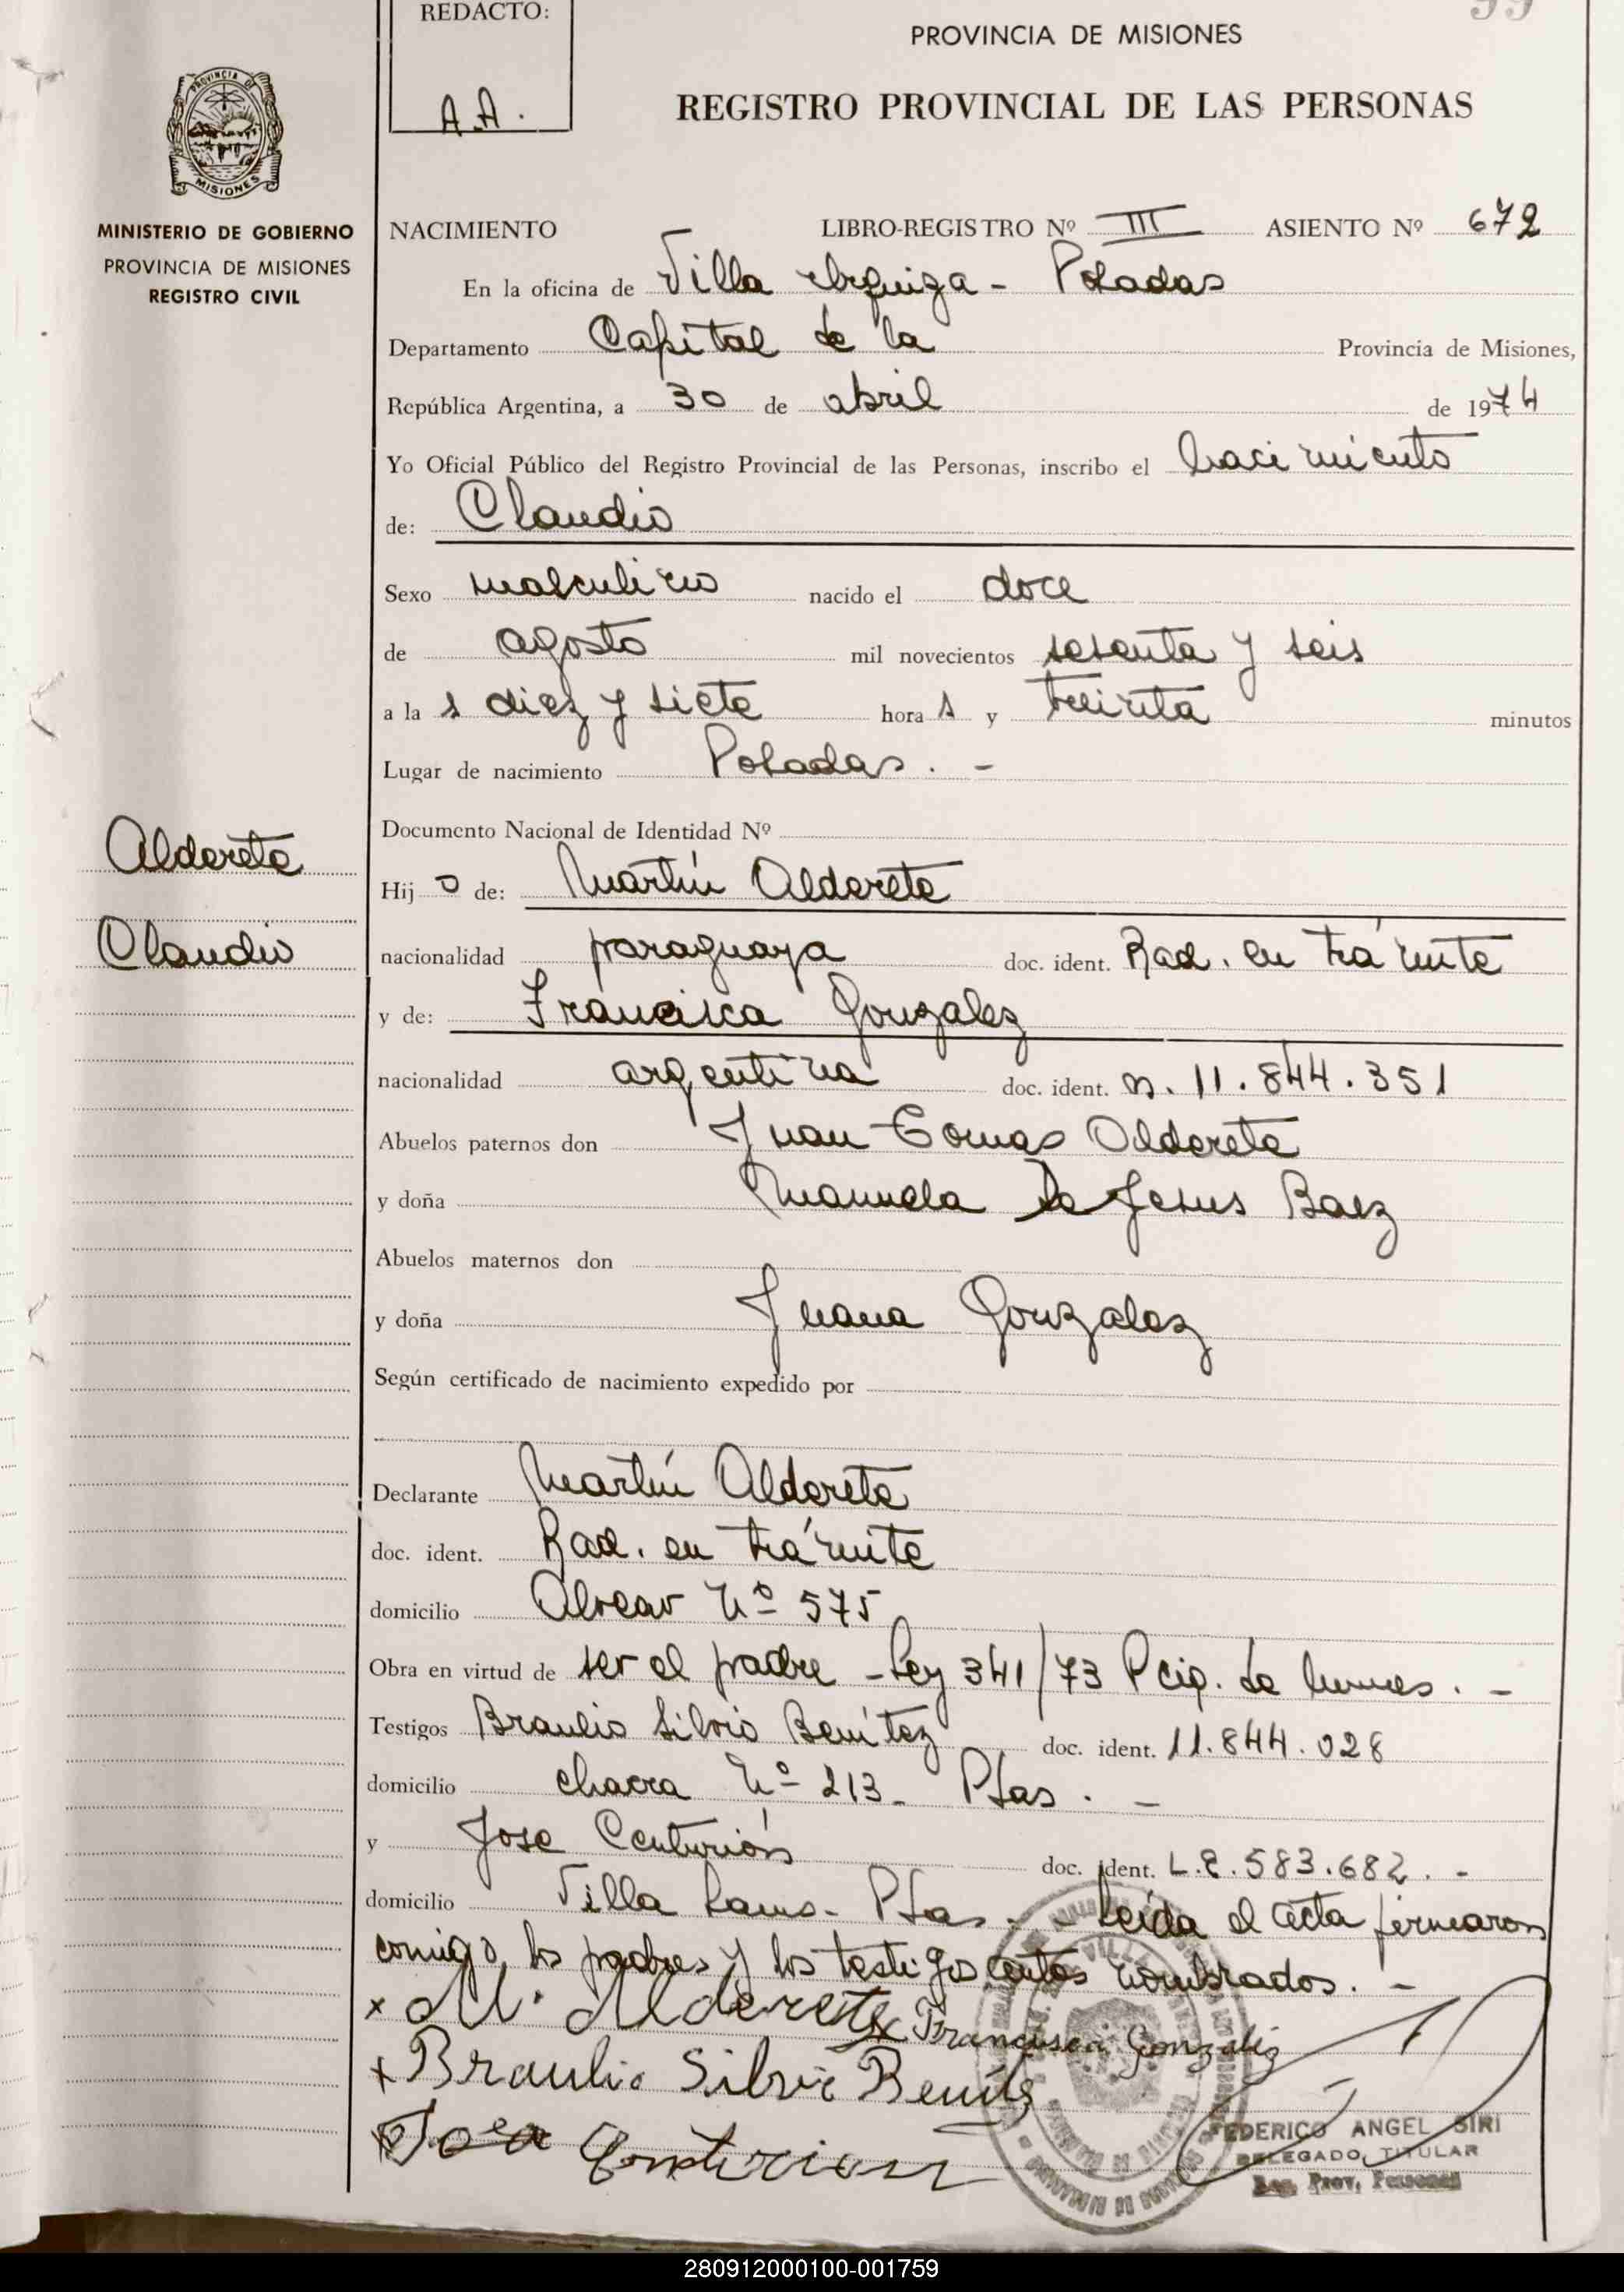 REDACTO:
A.A.
PROVINCIA DE MISIONES
REGISTRO PROVINCIAL DE LAS PERSONAS
PROVINCIA DE
MISIONES
MINISTERIO DE GOBIERNO
PROVINCIA DE MISIONES
REGISTRO CIVIL
NACIMIENTO LIBRO-REGISTRO Nº III ASIENTO Nº 672
En la oficina de Villa Urquiza - Posadas
Departamento Capital de la Provincia de Misiones,
República Argentina, a 30 de abril de 1974
Yo Oficial Público del Registro Provincial de las Personas, inscribo el nacimiento
de: Claudio
Sexo masculino nacido el doce
de agosto mil novecientos sesenta y seis
a la s diez y siete hora s y treinta minutos
Lugar de nacimiento Posadas. -
Documento Nacional de Identidad Nº
Alderete
Hij o de: Martín Alderete
Claudio
nacionalidad paraguaya doc. ident. Rad. en trámite
y de: Francisca Gonzalez
nacionalidad argentina doc. ident. n. 11.844.351
Abuelos paternos don Juan Tomas Alderete
y doña Manuela De Jesus Baez
Abuelos maternos don
y doña Juana Gonzalez
Según certificado de nacimiento expedido por
Declarante Martín Alderete
doc. ident. Rad. en trámite
domicilio Alvear Nº 575
Obra en virtud de ser el padre - Ley 341/73 Pcia. de
Testigos Braulio Silvio Benítez doc. ident. 11.844.028
domicilio chacra Nº 213 - Psas. -
y Jose Centurión doc. ident. L.E. 583.682. -
domicilio Villa Lanus - Psas. - Leída el acta firmaron
conmigo los padres y los testigos antes nombrados. -
x M. Alderete x Francisca Gonzalez
x Braulio Silvio Benítez
x Jose Centurion
FEDERICO ANGEL SIRI
DELEGADO TITULAR
Reg. Prov. Personas
280912000100-001759